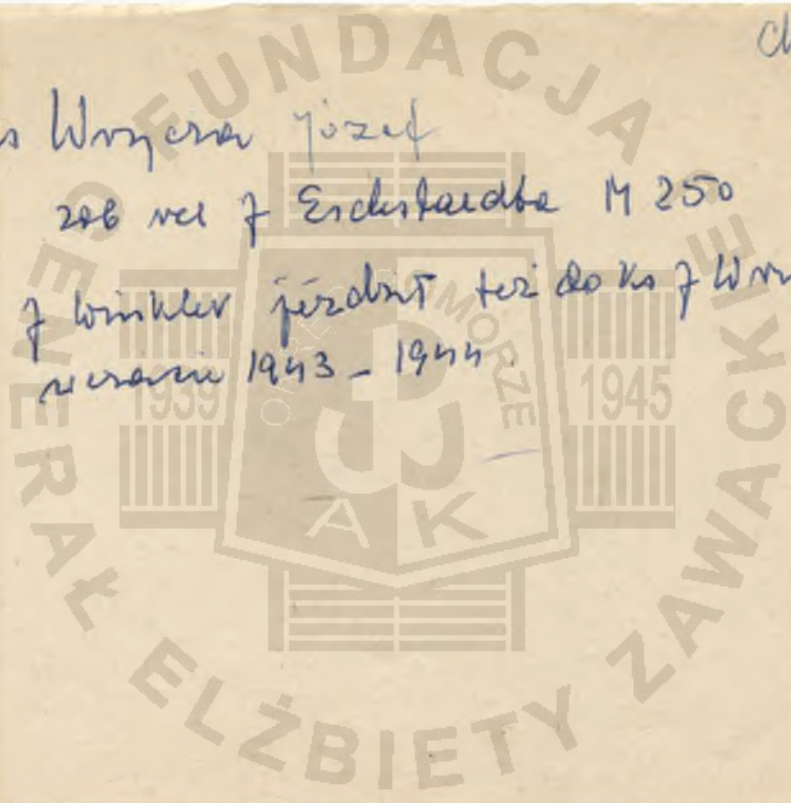 Ch
s Wrycza Józef
zob rel J Eichstaedta M 250
J Winkler jeździł też do Ks J Wry
w czasie 1943 - 1944.
FUNDACJA
GENERAŁ ELŻBIETY ZAWACKIE
POMORZE
1939
1945
AK